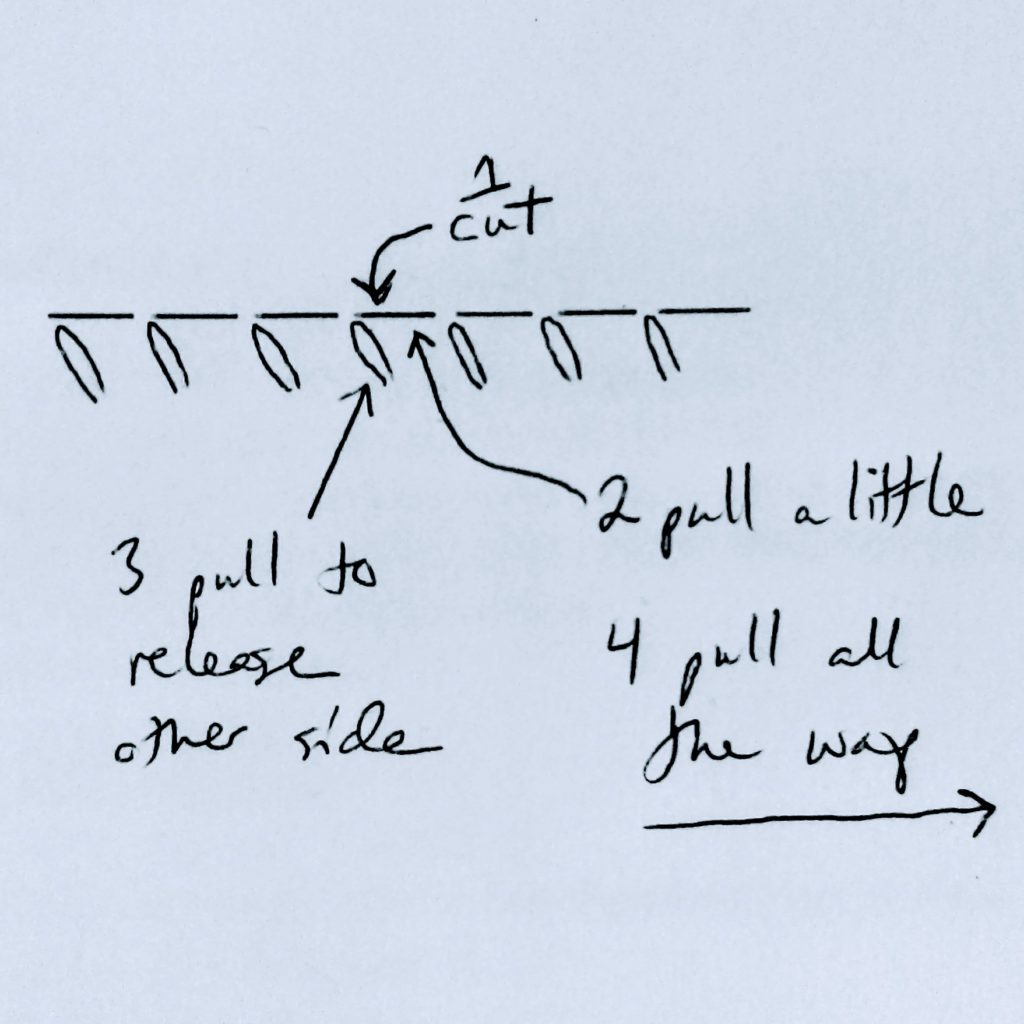 1
cut
2 pull a little
3 pull to
release
other side
4 pull all
the way